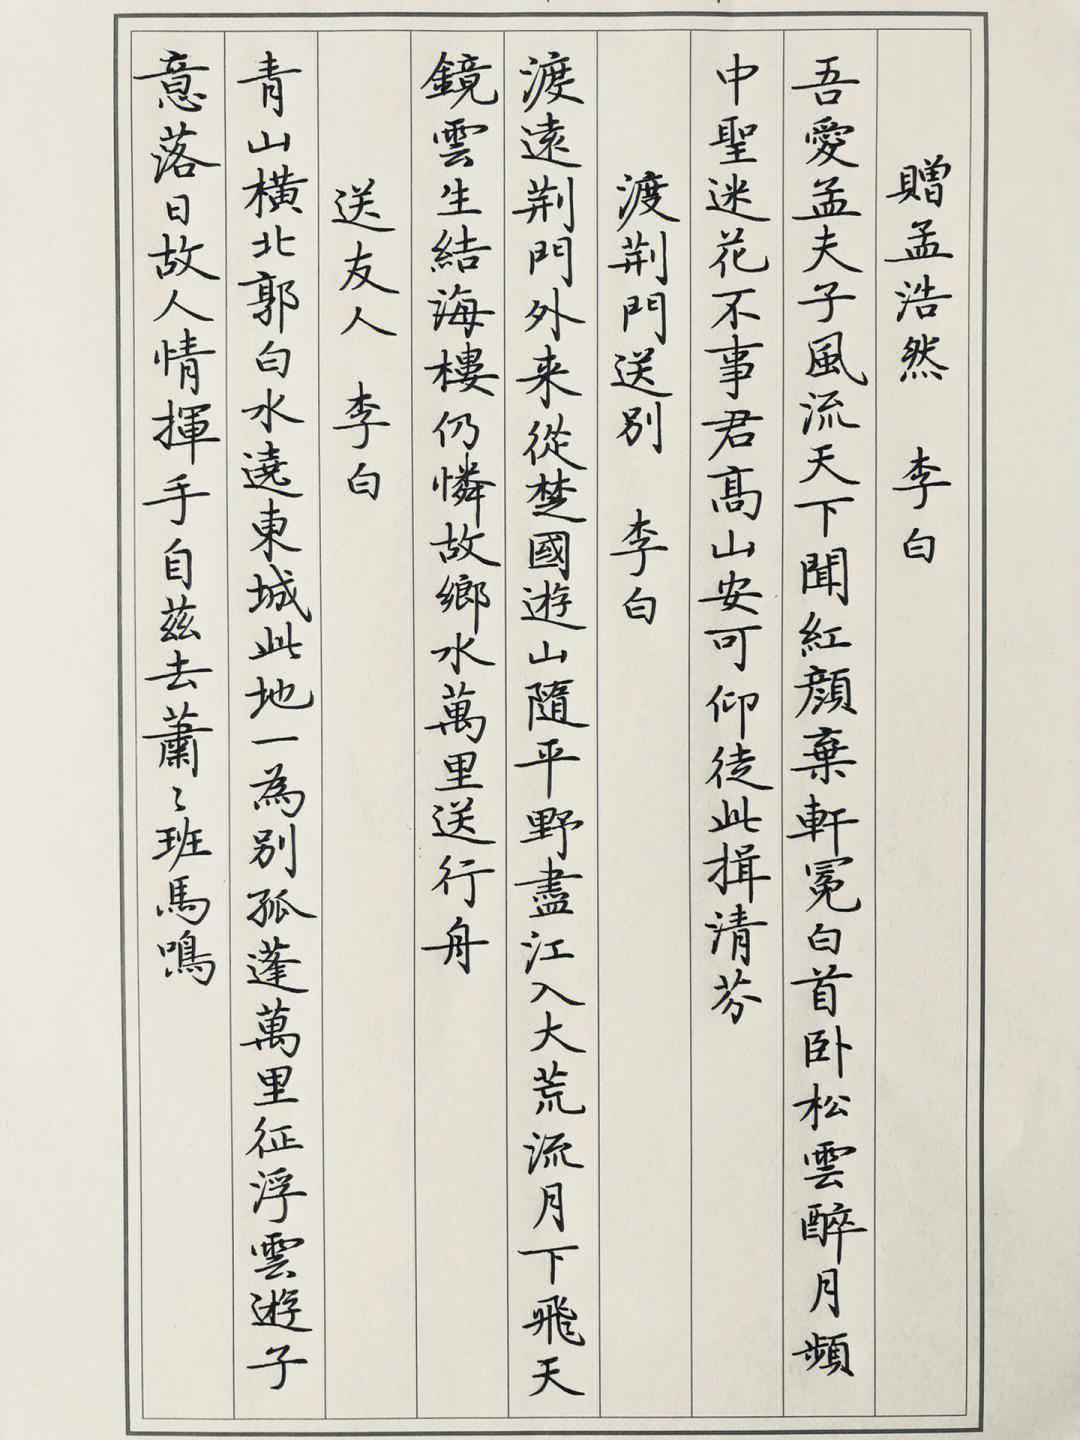 贈孟浩然 李白
吾愛孟夫子風流天下聞紅顏棄軒冕白首卧松雲醉月頻
中聖迷花不事君髙山安可仰徒此揖清芬
渡荆門送别 李白
渡遠荆門外来從楚國遊山隨平野盡江入大荒流月下飛天
鏡雲生結海樓仍憐故鄉水萬里送行舟
送友人 李白
青山橫北郭白水遶東城此地一為别孤蓬萬里征浮雲遊子
意落日故人情揮手自茲去蕭〻班馬鳴